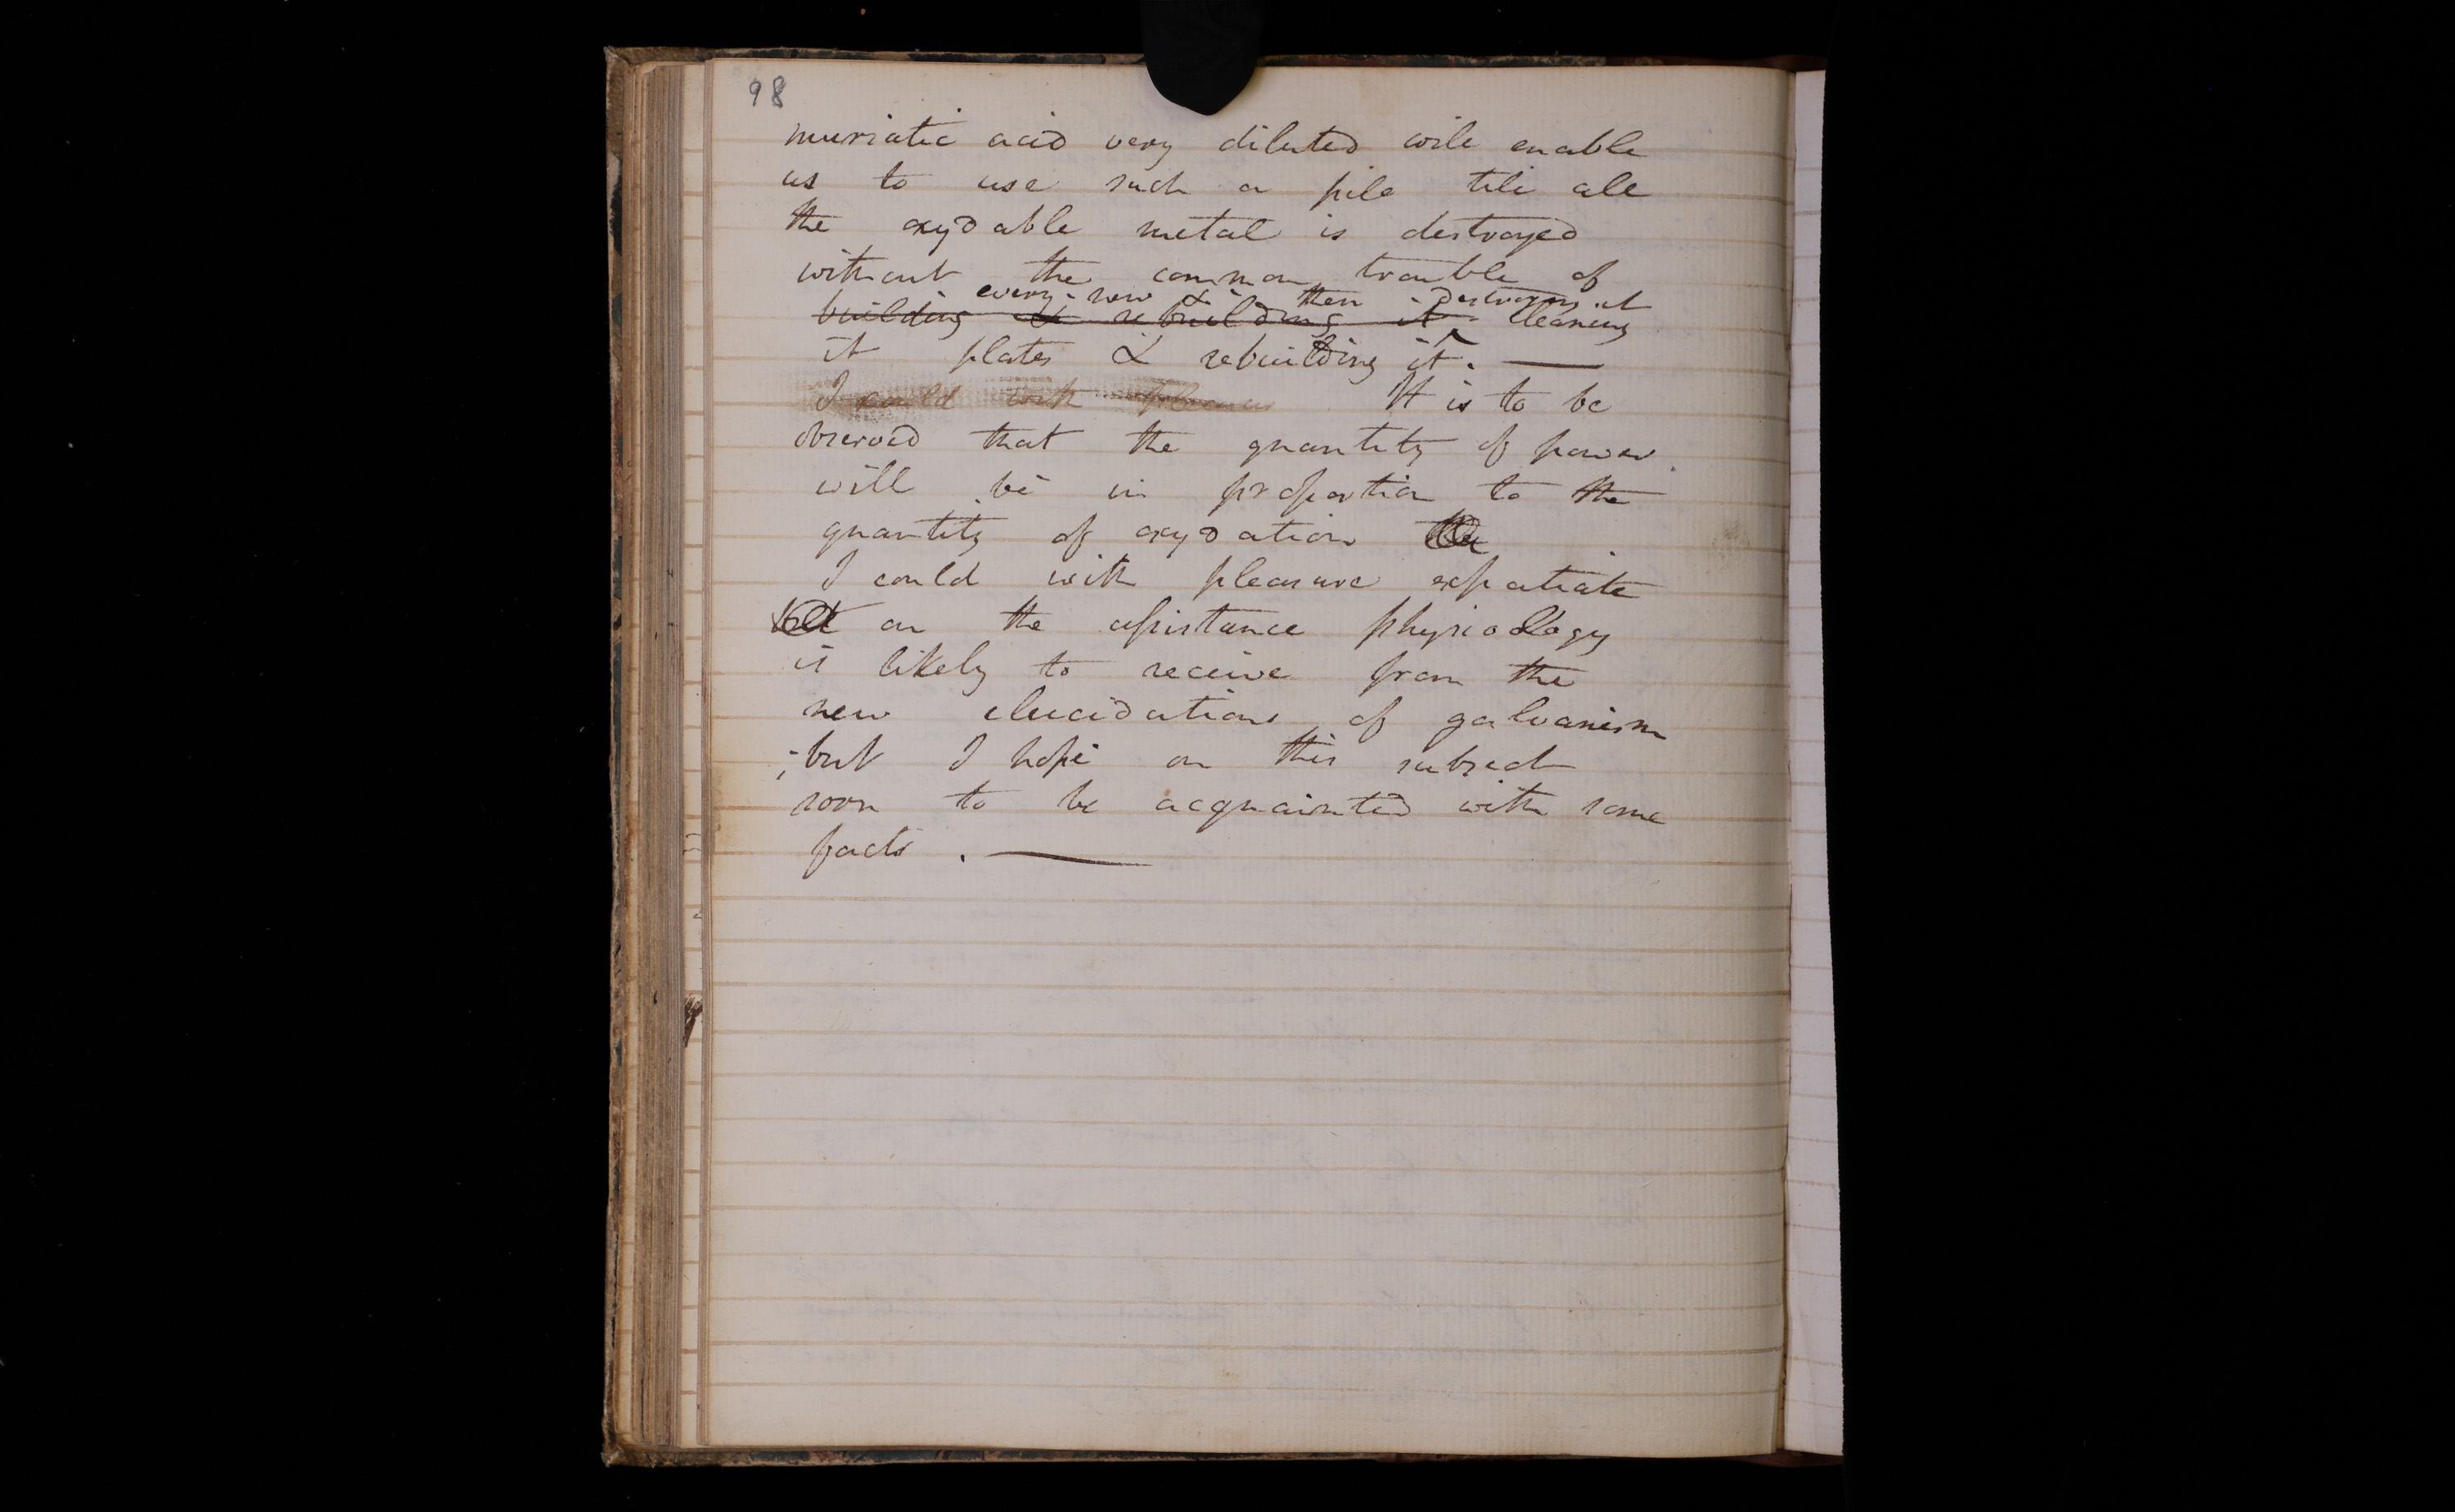 98
muriatic acid very diluted will enable
us to use such a pile till all
the oxydable metal is destroyed
without the common trouble of
every now & then destroying it
building & rebuilding it cleaning
it plates & rebuilding it. —
I could with pleasure It is to be
observed that the quantity of power
will be in proportion to the
quantity of oxydation
I could with pleasure expatiate
on the assistance physiology
is likely to receive from the
new elucidations of galvanism
; but I hope on this subject
soon to be acquainted with some
facts. —